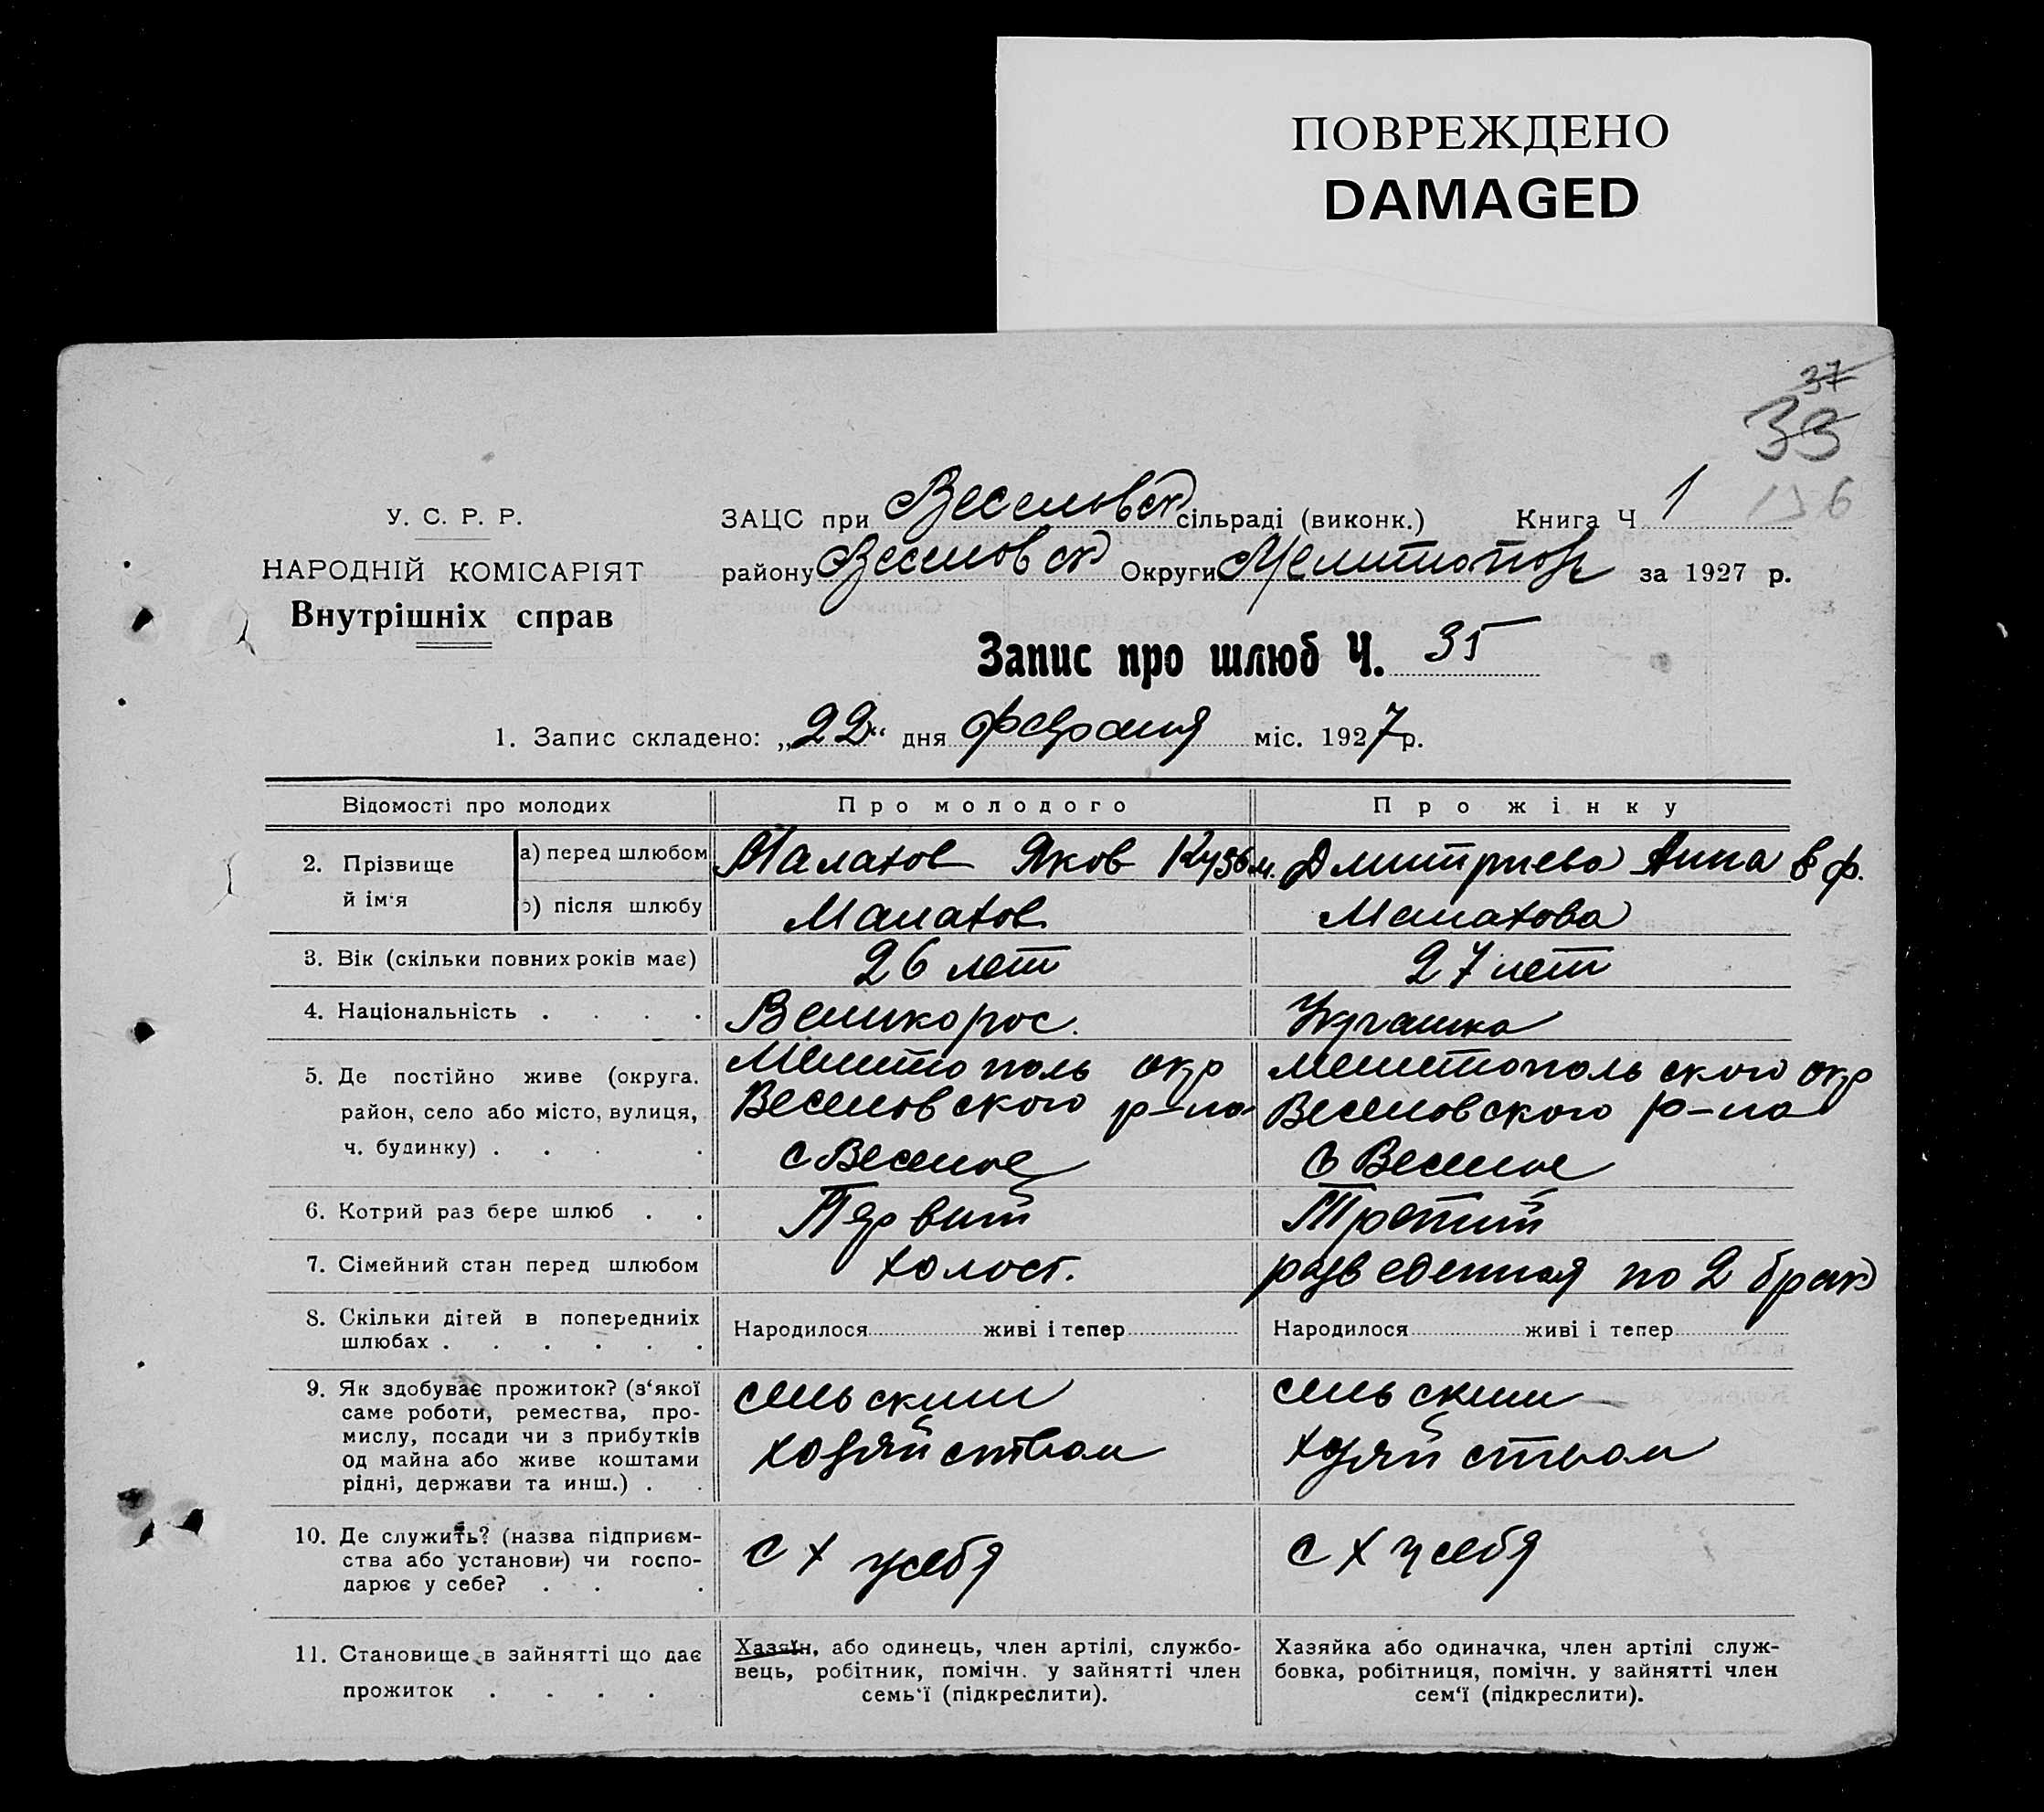 ПОВРЕЖДЕНО
DAMAGED
37
33
6
У. С. Р. Р.
НАРОДНІЙ КОМІСАРІЯТ
Внутрішніх справ
ЗАЦС при Веселовск сільраді (виконк.) Книга Ч 1
району Веселовск Округи Мелитопол за 1927 р.
Запис про шлюб Ч. 35
1. Запис складено: „22“ дня февраля міс. 1927 р.
Відомості про молодих
Про молодого
Про жінку
2. Прізвище й ім'я
а) перед шлюбом
Малахов Яков Кузьм.
Дмитриева Анна в ф.
б) після шлюбу
Малахов
Малахова
3. Вік (скільки повних років має)
26 лет
27 лет
4. Національність . . . .
Великорос.
Украинка
5. Де постійно живе (округа.
район, село або місто, вулиця,
ч. будинку) . . . .
Мелитополь окр
Веселовского р-на
с Веселое
Мелитопольского окр
Веселовского р-на
с Веселое
6. Котрий раз бере шлюб . .
Первый
Третий
7. Сімейний стан перед шлюбом
холост.
разведенная по 2 брак
8. Скільки дітей в попередниіх
шлюбах . . . . . .
Народилося живі і тепер
Народилося живі і тепер
9. Як здобуває прожиток? (з'якої
саме роботи, ремества, про-
мислу, посади чи з прибутків
од майна або живе коштами
рідні, держави та инш.) . .
сельским
хозяйством
сельским
хозяйством
10. Де служить? (назва підприєм-
ства або установи) чи госпо-
дарює у себе? . . .
с х у себя
с х у себя
11. Становище в зайнятті що дає
прожиток . . . . .
Хазяїн, або одинець, член артілі, службо-
вець, робітник, помічн. у зайнятті член
семь'ї (підкреслити).
Хазяйка або одиначка, член артілі служ-
бовка, робітниця, помічн. у зайнятті член
сем'ї (підкреслити).